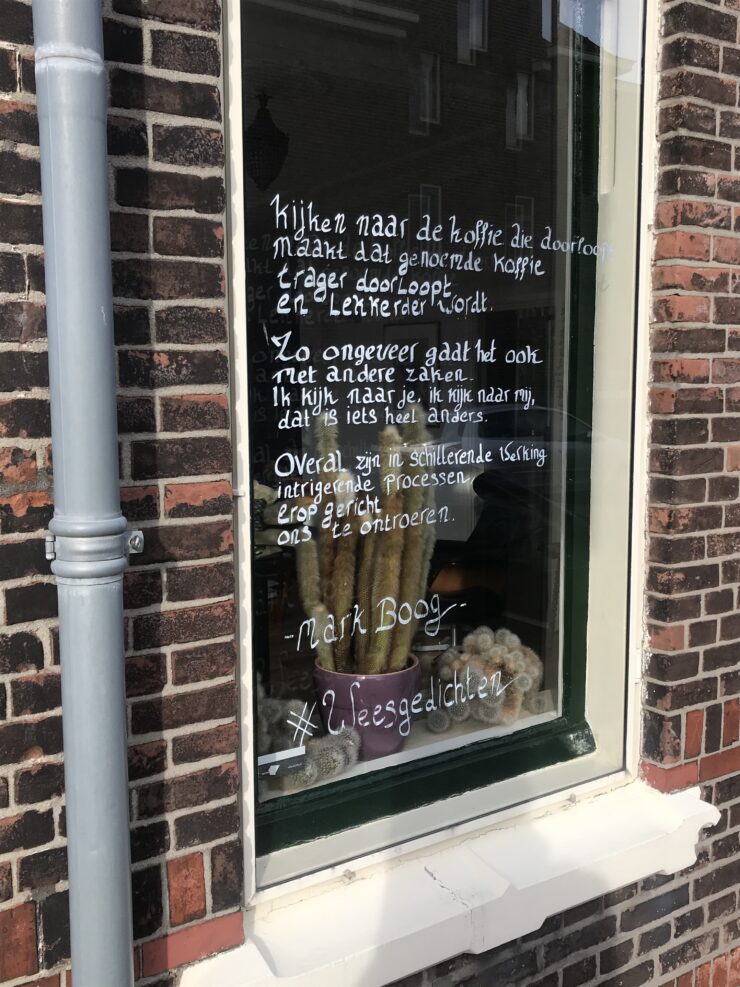 kijken naar de koffie die doorloopt
maakt dat genoemde koffie
trager doorloopt
en lekkerder wordt.
Zo ongeveer gaat het ook
met andere zaken.
Ik kijk naar je, ik kijk naar mij,
dat is iets heel anders.
Overal zijn in schillerende werking
intrigerende processen
erop gericht
ons te ontroeren.
- Mark Boog -
#Weesgedichten